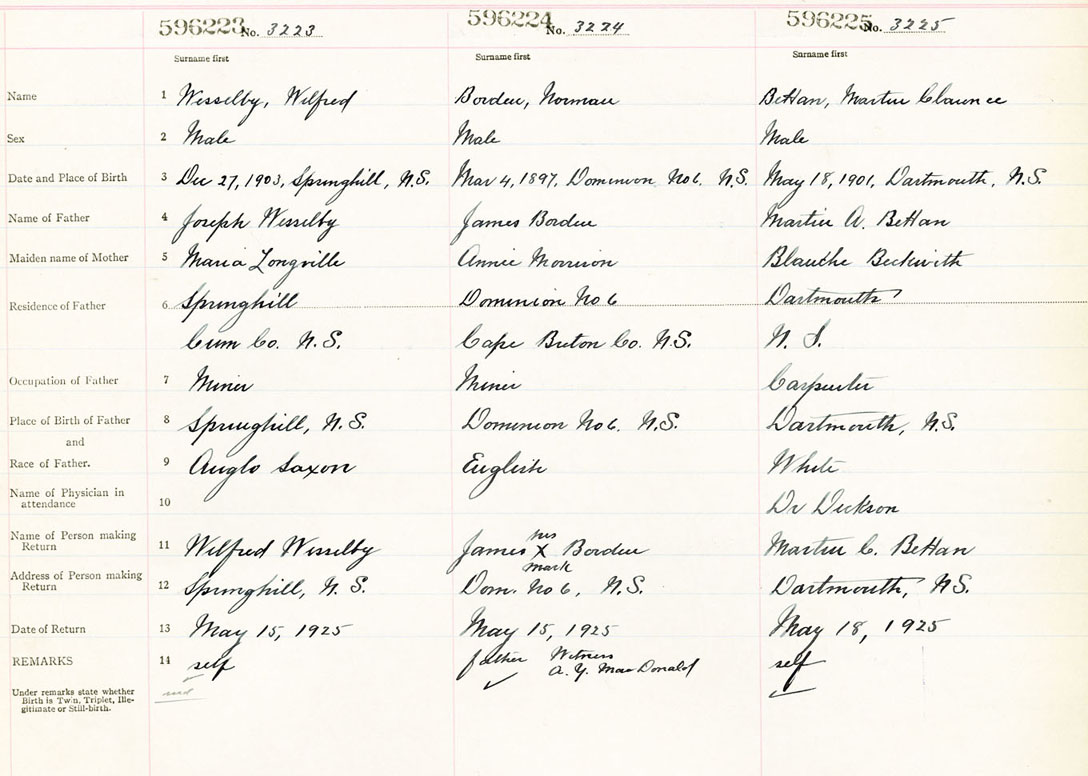 596223 No. 3223 596224 No. 3224 596225 No. 3225
Surname first Surname first Surname first
Name 1 Wesselby, Wilfred Borden, Norman BeHan, Martin Clarence
Sex 2 Male Male Male
Date and Place of Birth 3 Dec 27, 1903, Springhill, N.S. Mar 4, 1897, Dominion No 6. N.S. May 18, 1901, Dartmouth, N.S.
Name of Father 4 Joseph Wesselby James Borden Martin A. BeHan
Maiden name of Mother 5 Maria Longville Annie Morrison Blanche Beckwith
Residence of Father 6 Springhill Dominion No 6 Dartmouth
Cum Co. N.S. Cape Breton Co. N.S. N.S.
Occupation of Father 7 Miner Miner Carpenter
Place of Birth of Father 8 Springhill, N.S. Dominion No 6. N.S. Dartmouth, N.S.
and
Race of Father. 9 Anglo Saxon English White
Name of Physician in
attendance 10 Dr Dickson
Name of Person making
Return 11 Wilfred Wesselby James his X mark Borden Martin C. BeHan
Address of Person making
Return 12 Springhill, N.S. Dom. No 6, N.S. Dartmouth, NS.
Date of Return 13 May 15, 1925 May 15, 1925 May 18, 1925
REMARKS 14 self father Witness self
A. Y. MacDonald
Under remarks state whether
Birth is Twin, Triplet, Ille-
gitimate or Still-birth.